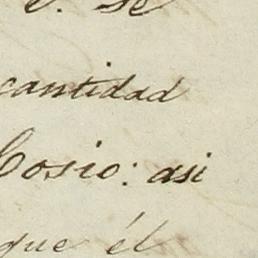 se
cantidad
Cosio: asi
que él